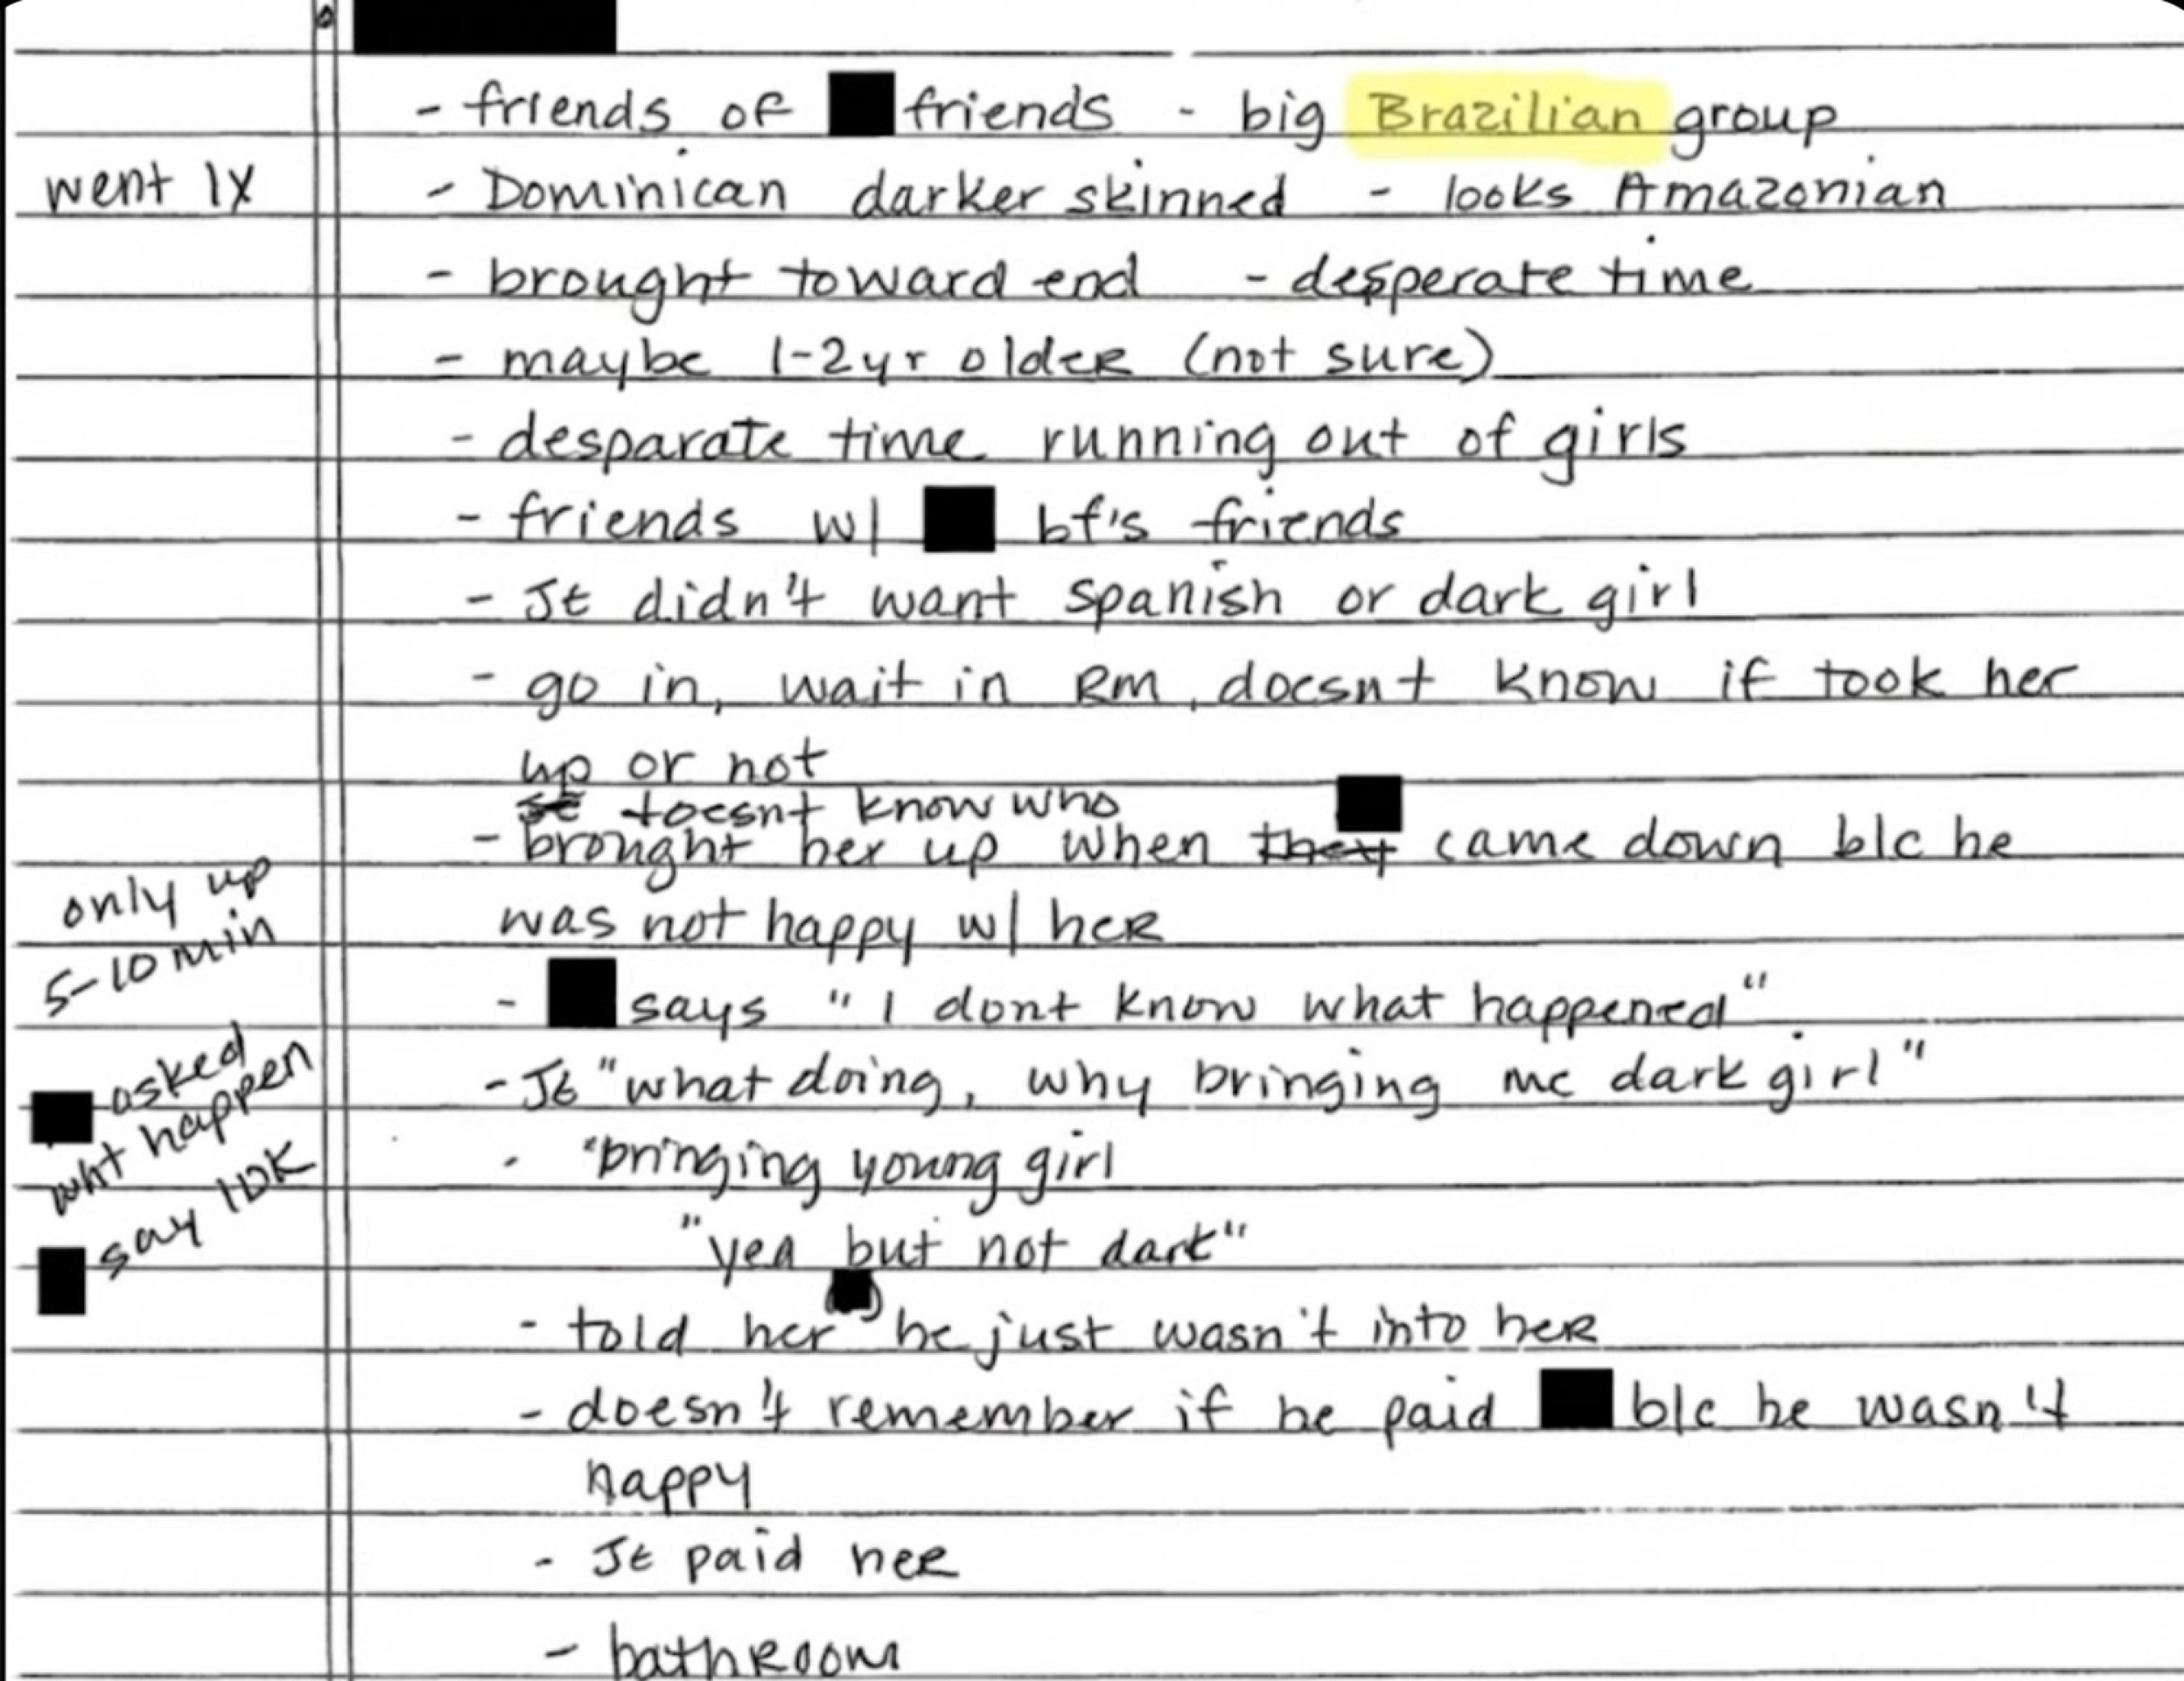 - friends of friends - big Brazilian group
went 1x - Dominican darker skinned - looks Amazonian
- brought toward end - desperate time
- maybe 1-2yr older (not sure)
- desparate time running out of girls
- friends w/ bf's friends
- JE didn't want spanish or dark girl
- go in, wait in Rm, doesnt know if took her
up or not
doesnt know who
- brought her up when they came down b/c he
was not happy w/ her
only up
5-10 min
- says "I dont know what happened"
- JE "what doing, why bringing me dark girl"
asked
what happen
say IDK
- "bringing young girl
"yea but not dark"
- told her he just wasn't into her
- doesn't remember if he paid b/c he wasn't
happy
- JE paid her
- bathroom